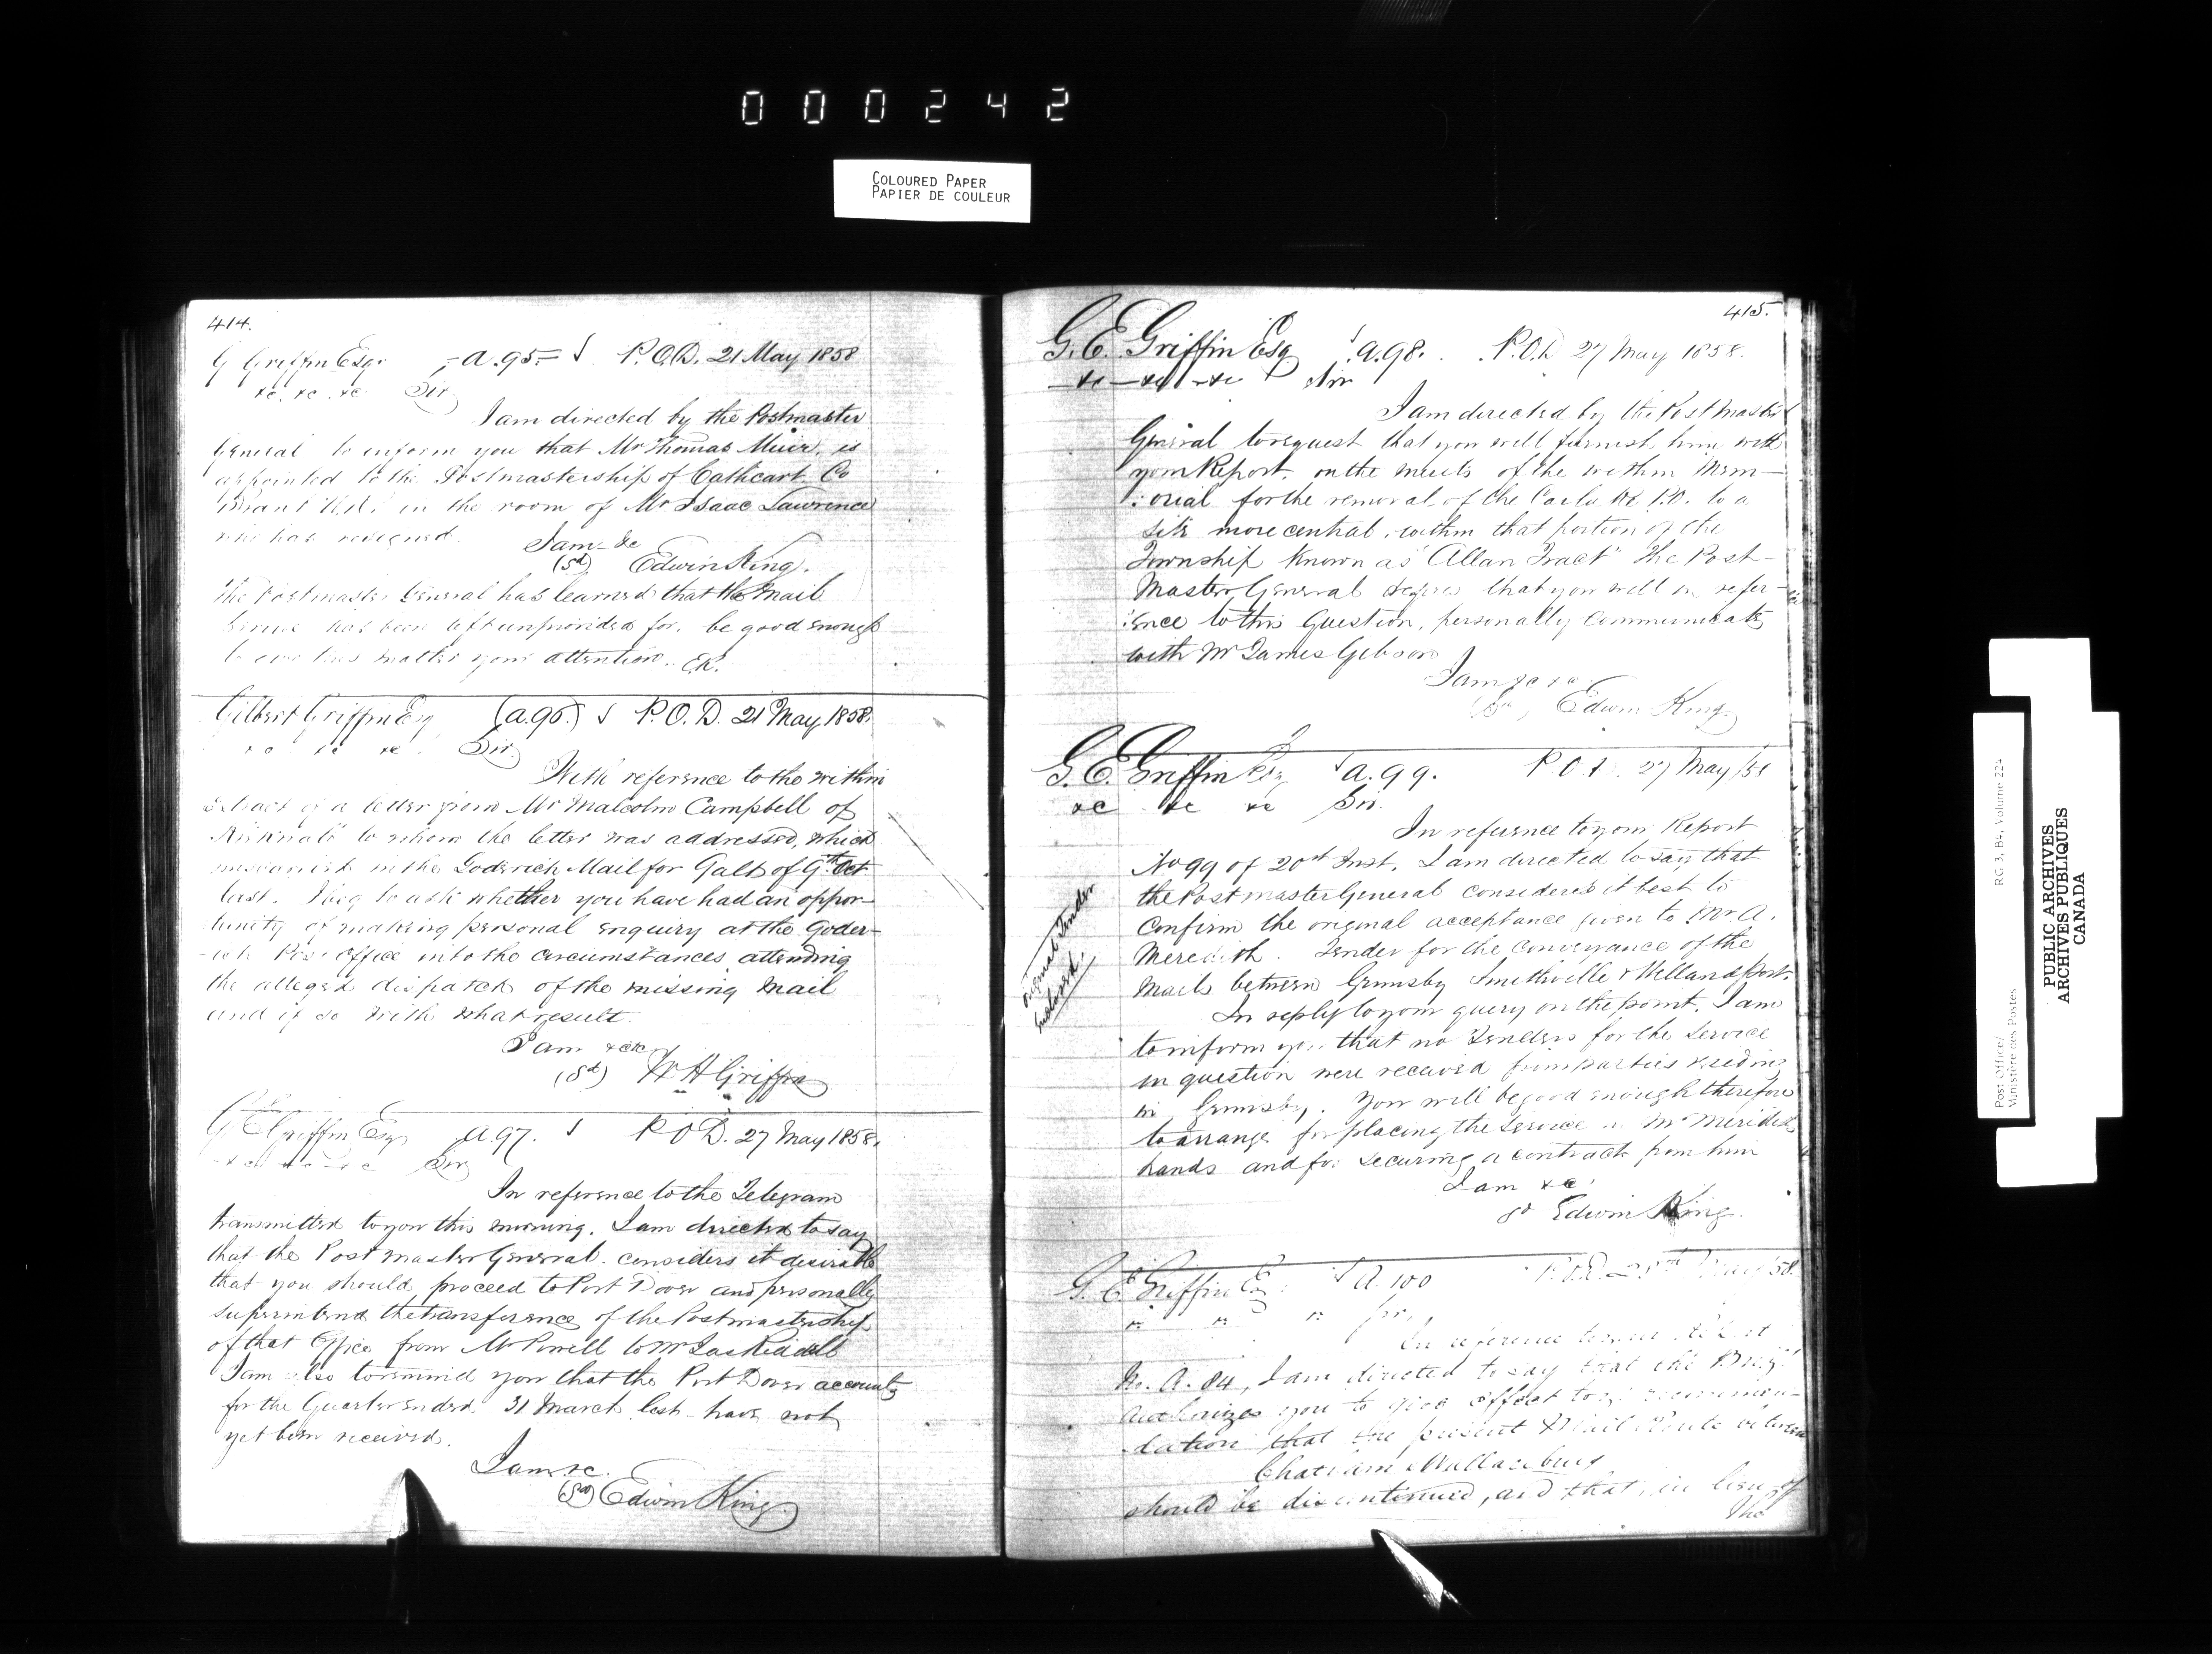 000242
COLOURED PAPER
PAPIER DE COULEUR
414.
G Griffin Esqr - A.95 = P.O.D. 21 May 1858
&c. &c. &c. Sir
I am directed by the Postmaster
General to inform you that Mr Thomas Muir, is
appointed to the Postmastership of Cathcart Co
Brant U.C. in the room of Mr Isaac Lawrence
who has resigned.
I am &c
(Sd) Edwin King.
The Postmaster General has learned that the Mail
has been left unprovided for, be good enough
to give this matter your attention. E.K.
Gilbert Griffin Esq (A.96.) P.O.D. 21 May, 1858.
&c &c &c Sir
With reference to the within
extract of a letter from Mr Malcolm Campbell of
to whom the letter was addressed, which
in the Goderich Mail for Galt of 9th Oct
last. I beg to ask whether you have had an oppor-
tunity of making personal enquiry at the Goder-
-ich Post Office into the circumstances attending
the alleged dispatch of the missing Mail
and if so with what result.
I am &c &c
(Sd) W H Griffin
G E Griffin Esq A.97. P O D. 27 May 1858.
&c &c &c Sir
In reference to the Telegram
transmitted to you this morning. I am directed to say
that the Post Master General considers it desirable
that you should, proceed to Port Dover and personally
superintend the transference of the Postmastership
of that Office from Mr Powell to Mr Jas Riddell
I am also to remind you that the Port Dover accounts
for the Quarter ended 31 March last have not
yet been received.
I am &c.
(Sd) Edwin King.
415.
G. E. Griffin Esq A.98. P.O.D 27 May 1858.
&c &c &c Sir
I am directed by the Post Master
General to request that you will furnish him with
your Report, on the merits of the within Mem-
:orial for the removal of the P.O. to a
site more central, within that portion of the
Township known as "Allan Tract" The Post-
Master General desires that you will in refer-
:ence to this Question, personally communicate
with Mr James Gibson
I am &c &c
(Sd) Edwin King.
G. E. Griffin Esq A.99. P O D. 27 May /58
&c &c &c Sir.
In reference to your Report
No 99 of 20th Inst. I am directed to say, that
the Post master General considers it best to
confirm the original acceptance given to Mr A.
Meredith. Tender for the conveyance of the
Mails between Grimsby Smithville & Wellandport.
In reply to your query on the point. I am
to inform you that no Tenders for the service
in question were received from parties residing
in Grimsby. You will be good enough therefore
to arrange for placing the service in Mr Merideth
hands and for securing a contract from him
I am &c
Sd Edwin King.
original tender
enclosed.
G. E Griffin Esq A. 100 P.O.D. 28th May /58.
" " " Sir,
In reference to your
No. A. 84, I am directed to say that the
authorizes you to give effect to yr recommen-
-dation that the present Mail Route between
Chatham & Wallaceburg
should be discontinued, and that, in lieu of
The
Post Office/
Ministère des Postes
RG 3, B4, Volume 224
PUBLIC ARCHIVES
ARCHIVES PUBLIQUES
CANADA